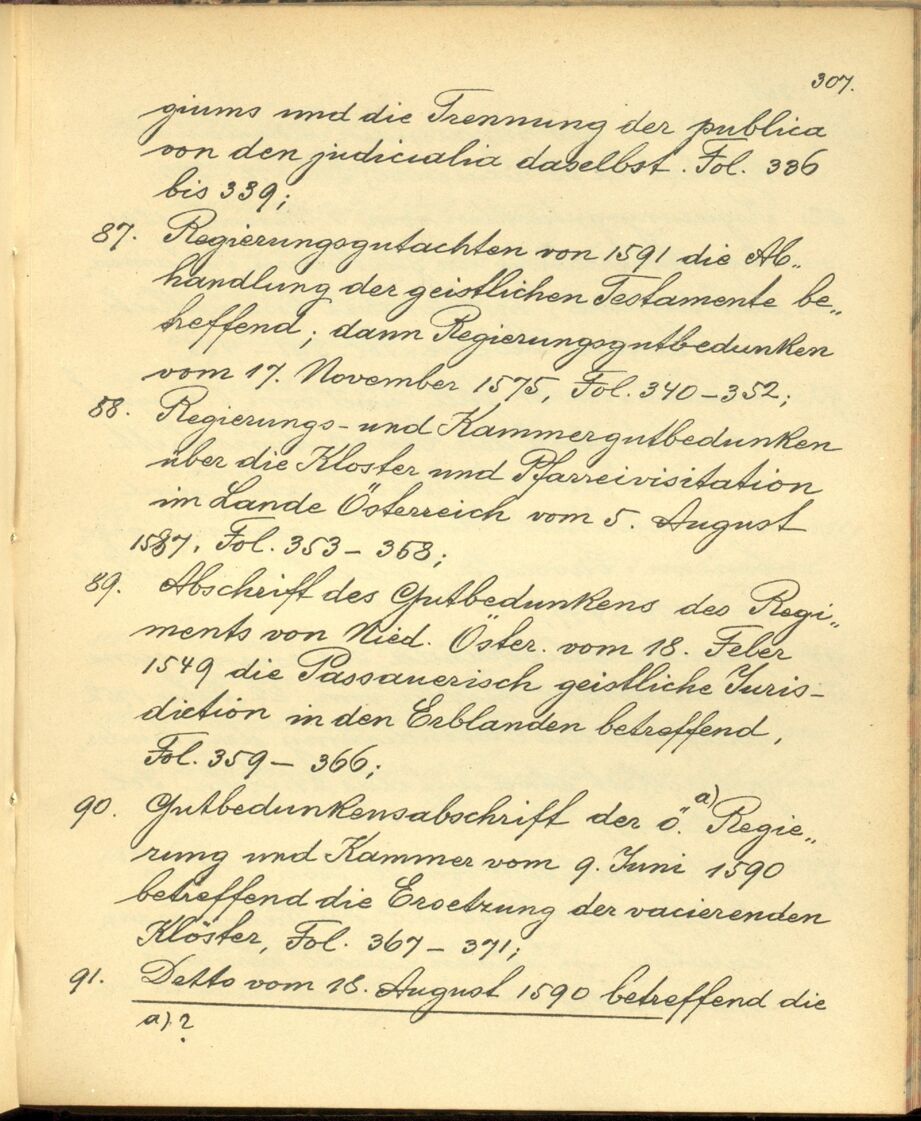 307.
giums und die Trennung der publica
von den judicialia daselbst. Fol. 336
bis 339;
87. Regierungsgutachten von 1591 die Ab„
handlung der geistlichen Testamente be„
treffend; dann Regierungsgutbedunken
vom 17. November 1575, Fol. 340–352;
88. Regierungs- und Kammergutbedunken
über die Kloster und Pfarreivisitation
im Lande Österreich vom 5. August
1587, Fol. 353– 358;
89. Abschrift des Gutbedunkens des Regi„
ments von Nied. Öster. vom 18. Feber
1549 die Passauerisch geistliche Juris-
diction in den Erblanden betreffend,
Fol. 359– 366;
90. Gutbedunkensabschrift der ö. a) Regie„
rung und Kammer vom 9. Juni 1590
betreffend die Ersetzung der vacierenden
Klöster, Fol. 367– 371;
91. Detto vom 18. August 1590 betreffend die
a) ?